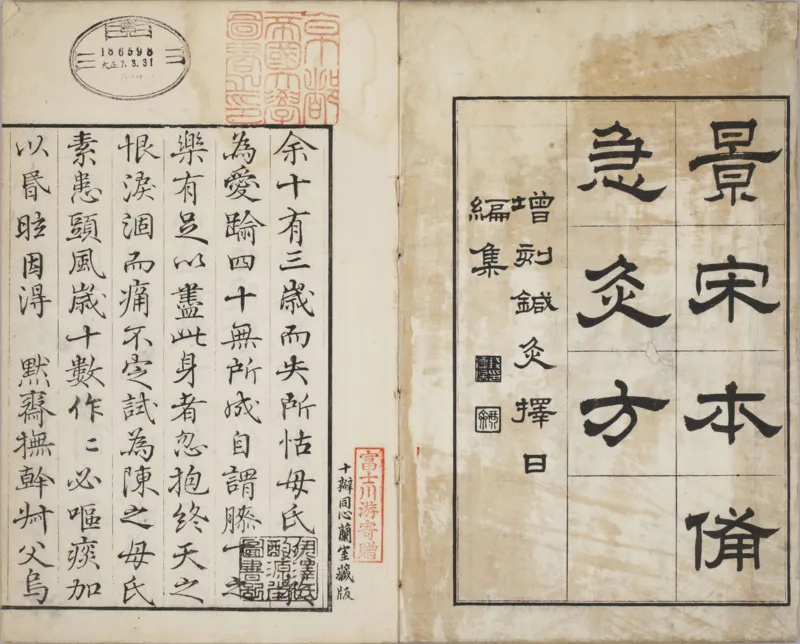 景宋本備
急灸方
增刻鍼灸擇日
編集
186598
大正7.3.31
京都
帝國大學
圖書之印
富士川游寄贈
十瓣同心蘭室藏版
余十有三歲而失所怙母氏
為愛踰四十無所成自謂膝下之
樂有足以盡此身者忽抱終天之
恨淚涸而痛不定試為陳之母氏
素患頭風歲十數作〻必嘔痰加
以昬眩因得　默齋撫幹叔父烏
伊澤氏
酌源堂
圖書記